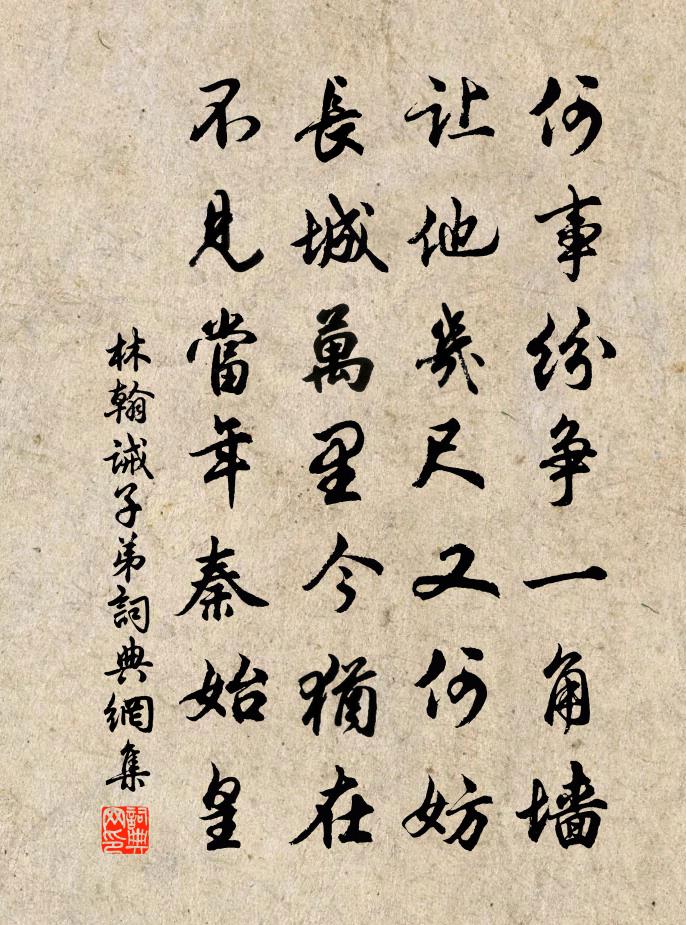 何事纷争一角墙
让他幾尺又何妨
長城萬里今猶在
不見當年秦始皇
林翰诫子弟詞典網集
詞典网印